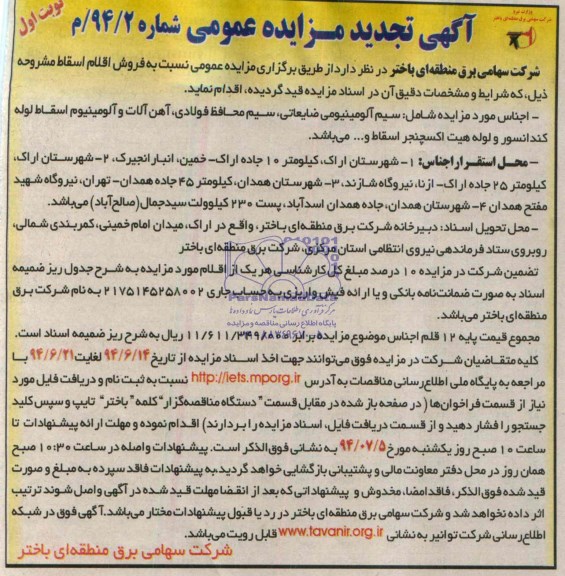 نوبت اول
وزارت نیرو
شرکت سهامی برق منطقه‌ای باختر
آگهی تجدید مزایده عمومی شماره ۹۴/۲/م
شرکت سهامی برق منطقه‌ای باختر در نظر دارد از طریق برگزاری مزایده عمومی نسبت به فروش اقلام اسقاط مشروحه
ذیل، که شرایط و مشخصات دقیق آن در اسناد مزایده قید گردیده، اقدام نماید.
- اجناس مورد مزایده شامل: سیم آلومینیومی ضایعاتی، سیم محافظ فولادی، آهن آلات و آلومینیوم اسقاط لوله
کندانسور و لوله هیت اکسچنجر اسقاط و... می‌باشد.
- محل استقرار اجناس: ۱- شهرستان اراک، کیلومتر ۱۰ جاده اراک- خمین، انبار انجیرک، ۲- شهرستان اراک،
کیلومتر ۲۵ جاده اراک- ازنا، نیروگاه شازند، ۳- شهرستان همدان، کیلومتر ۴۵ جاده همدان- تهران، نیروگاه شهید
مفتح همدان ۴- شهرستان همدان، جاده همدان اسدآباد، پست ۲۳۰ کیلوولت سیدجمال (صالح‌آباد) می‌باشد.
- محل تحویل اسناد: دبیرخانه شرکت برق منطقه‌ای باختر، واقع در اراک، میدان امام خمینی، کمربندی شمالی،
روبروی ستاد فرماندهی نیروی انتظامی استان مرکزی، شرکت برق منطقه‌ای باختر
تضمین شرکت در مزایده ۱۰ درصد مبلغ کل کارشناسی هر یک از اقلام مورد مزایده به شرح جدول ریز ضمیمه
اسناد به صورت ضمانت‌نامه بانکی و یا ارائه فیش واریزی به حساب جاری ۲۱۷۵۱۴۵۲۵۸۰۰۲ به نام شرکت برق
منطقه‌ای باختر می‌باشد.
مجموع قیمت پایه ۱۲ قلم اجناس موضوع مزایده برابر ریال به شرح ریز ضمیمه اسناد است.
کلیه متقاضیان شرکت در مزایده فوق می‌توانند جهت اخذ اسناد مزایده از تاریخ ۹۴/۶/۱۴ لغایت ۹۴/۶/۲۱ با
مراجعه به پایگاه ملی اطلاع‌رسانی مناقصات به آدرس http://iets.mporg.ir نسبت به ثبت نام و دریافت فایل مورد
نیاز از قسمت فراخوان‌ها (در صفحه باز شده در مقابل قسمت "دستگاه مناقصه‌گزار" کلمه "باختر" تایپ و سپس کلید
جستجو را فشار دهید و از قسمت دریافت فایل، اسناد مزایده را بردارند) اقدام نموده و مهلت ارائه پیشنهادات تا
ساعت ۱۰ صبح روز یکشنبه مورخ ۹۴/۰۷/۵ به نشانی فوق الذکر است. پیشنهادات واصله در ساعت ۱۰:۳۰ صبح
همان روز در محل دفتر معاونت مالی و پشتیبانی بازگشایی خواهد گردید، به پیشنهادات فاقد سپرده به مبلغ و صورت
قید شده فوق الذکر، فاقد امضا، مخدوش و پیشنهاداتی که بعد از انقضا مهلت قید شده در آگهی واصل شوند ترتیب
اثر داده نخواهد شد و شرکت سهامی برق منطقه‌ای باختر در رد یا قبول پیشنهادات مختار می‌باشد. آگهی فوق در شبکه
اطلاع‌رسانی شرکت توانیر به نشانی www.tavanir.org.ir قابل رویت می‌باشد.
شرکت سهامی برق منطقه‌ای باختر
ParsNamadData
پایگاه اطلاع رسانی مناقصه و مزایده